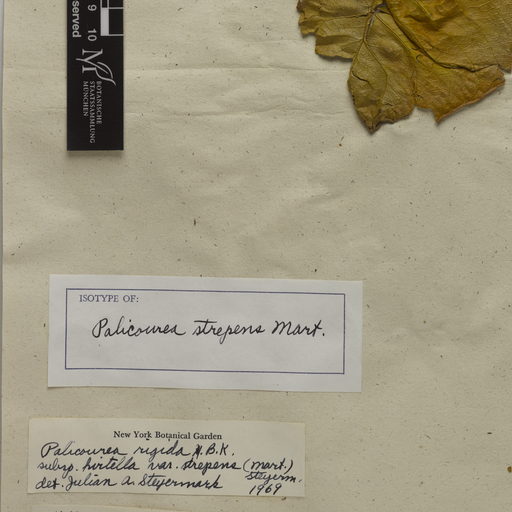 served
9 10
M
BOTANISCHE
STAATSSAMMLUNG
MÜNCHEN
ISOTYPE OF:
Palicourea strepens Mart.
New York Botanical Garden
Palicourea rigida H.B.K.
subsp. hirtella var. strepens (Mart.)
Steyerm.
det. Julian A. Steyermark 1969